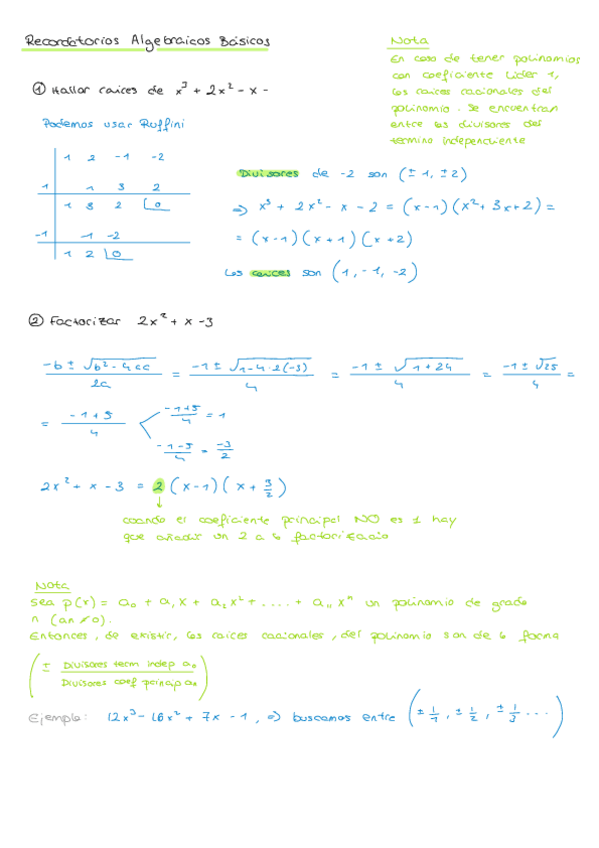 Recordatorios Algebraicos Básicos
Nota
En caso de tener polinomios
con coeficiente lider 1,
las raices racionales del
polinomio. Se encuentran
entre los divisores del
termino independiente
① Hallar raices de x³ + 2x² - x -
Podemos usar Ruffini
1 2 -1 -2
1 1 3 2
1 3 2 0
-1 -1 -2
1 2 0
Divisores de -2 son (±1, ±2)
=> x³ + 2x² - x - 2 = (x-1)(x² + 3x + 2) =
= (x-1)(x+1)(x+2)
Las raices son (1, -1, -2)
② Factorizar 2x² + x - 3
(-b ± √(b² - 4ac))/2a = (-1 ± √(1-4·2(-3)))/4 = (-1 ± √(1+24))/4 = (-1 ± √25)/4 =
= (-1+5)/4
(-1+5)/4 = 1
(-1-5)/4 = -3/2
2x² + x - 3 = 2(x-1)(x + 3/2)
cuando el coeficiente principal NO es 1 hay
que añadir un 2 a la factorizacio
Nota
Sea p(x) = a₀ + a₁x + a₂x² + .... + aₙxⁿ un polinomio de grado
n (an ≠ 0).
Entonces, de existir, las raices racionales, del polinomio son de la forma
(± Divisores term indep a₀
Divisores coef princip a₀)
Ejemplo: 12x³ - 16x² + 7x - 1, => buscamos entre (± 1/1, ± 1/2, ± 1/3 ...)